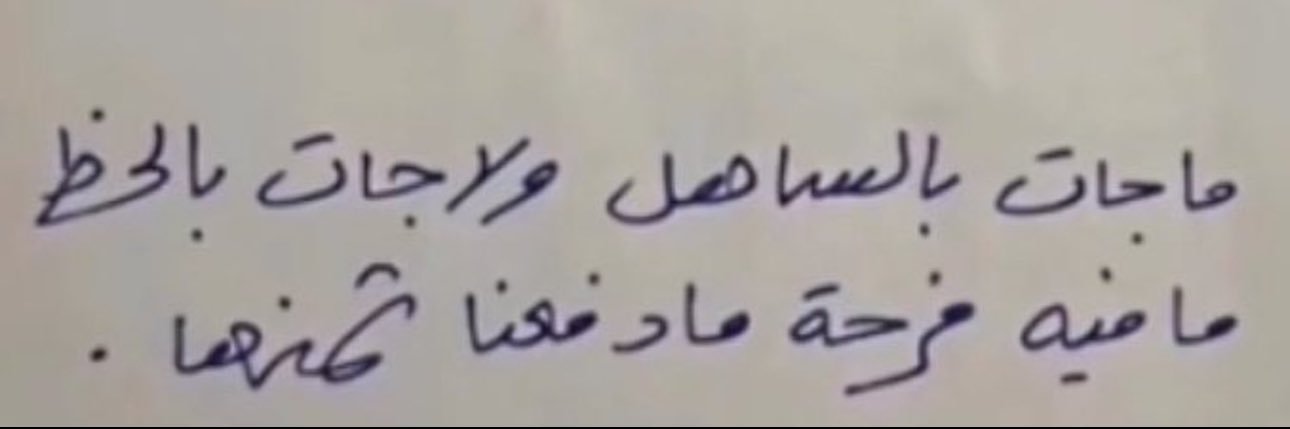 ماجات بالساهل ولاجات بالحظ
ما فيه فرحة مادفعنا ثمنها .